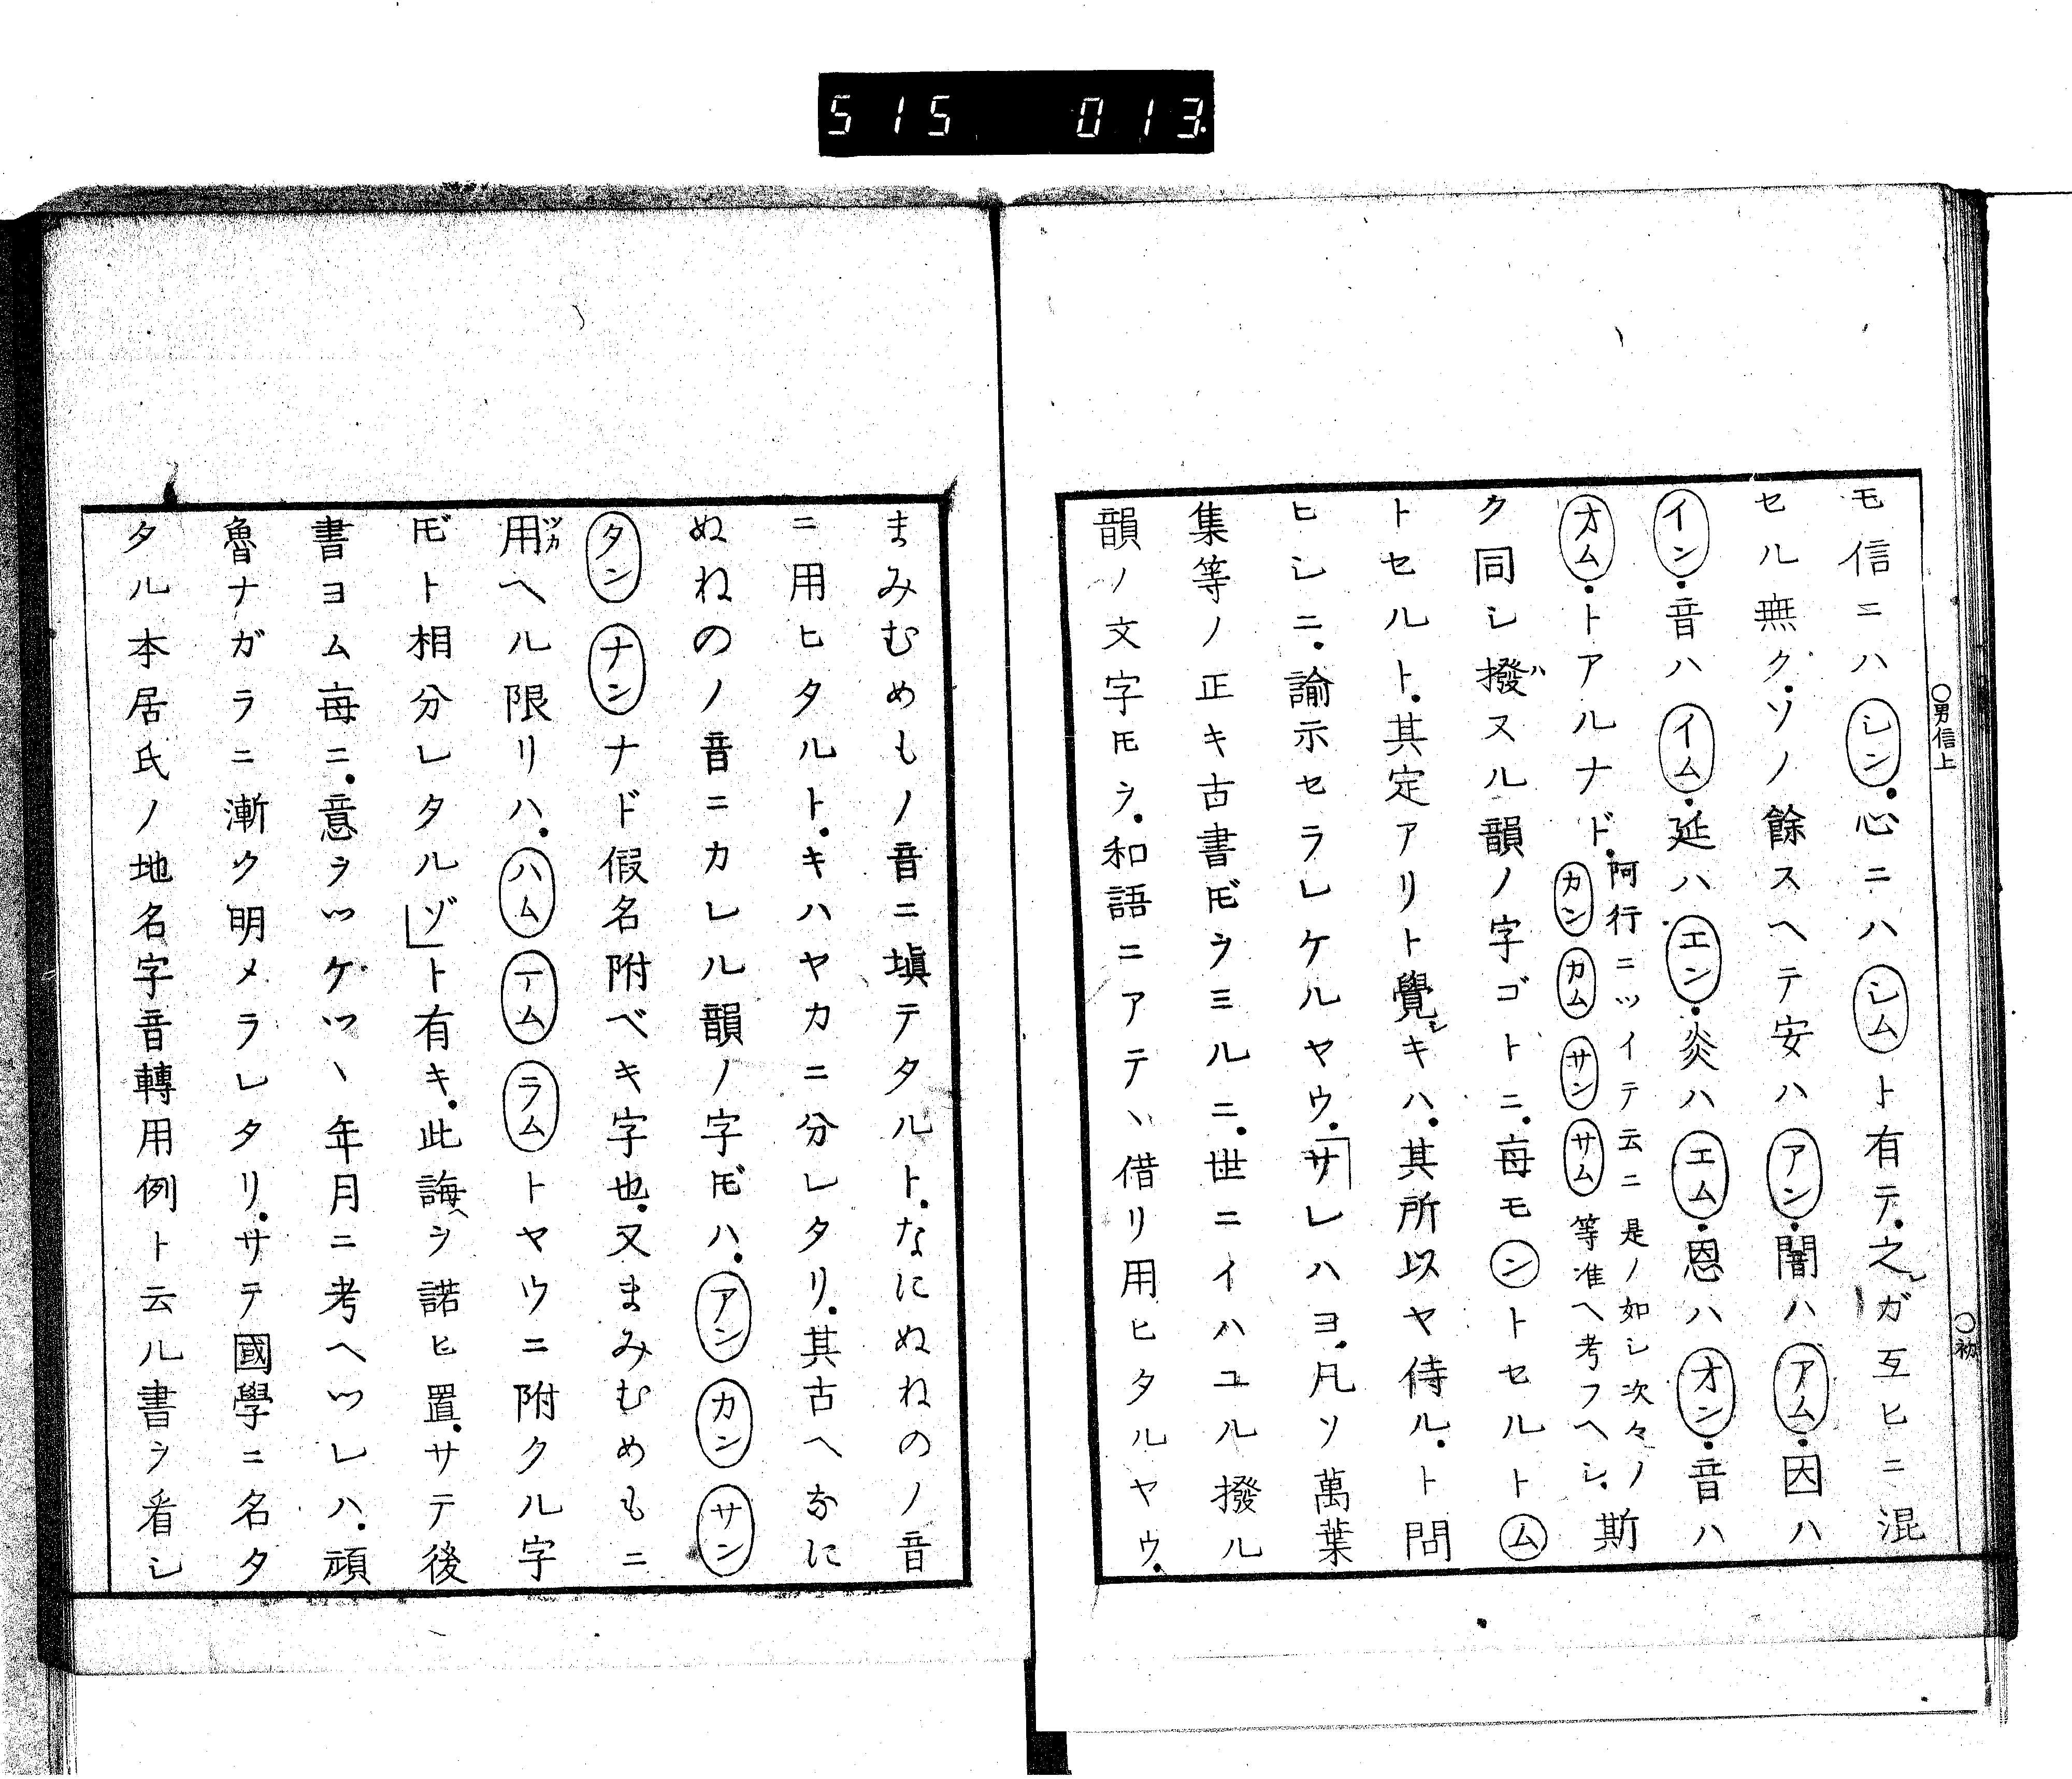 515 013.
○男信上 ○初
モ信ニハシン．心ニハシムト有テ．之ガ互ヒニ混
セル無ク．ソノ餘スヘテ安ハアン．闇ハアム．因ハ
イン．音ハイム．延ハエン．炎ハエム．恩ハオン．音ハ
オム．トアルナド．阿行ニツイテ云ニ是ノ如シ次々ノカンカムサンサム等准ヘ考フヘシ．斯
ク同シ撥ヌル韻ノ字ゴトニ．毎モントセルトム
トセルト．其定アリト覺シキハ．其所以ヤ侍ル．ト問
ヒシニ．諭示セラレケルヤウ．「サレハヨ．凡ソ萬葉
集等ノ正キ古書𪜈ヲミルニ．世ニイハユル撥ル
韻ノ文字𪜈ヲ．和語ニアテヽ借リ用ヒタルヤウ．
まみむめもノ音ニ塡テタルト．なにぬねのノ音
ニ用ヒタルト．キハヤカニ分レタリ．其古へなに
ぬねのノ音ニカレル韻ノ字𪜈ハ．アンカンサン
タンナンナド假名附ベキ字也．又まみむめもニ
用ヘル限リハ．ハムテムラムトヤウニ附クル字
𪜈ト相分レタルゾ」ト有キ．此誨ヘヲ諾ヒ置．サテ後
書ヨム毎ニ．意ヲツケツヽ年月ニ考ヘツレハ．頑
魯ナガラニ漸ク明メラレタリ．サテ國學ニ名タ
タル本居氏ノ地名字音轉用例ト云ル書ヲ看シ